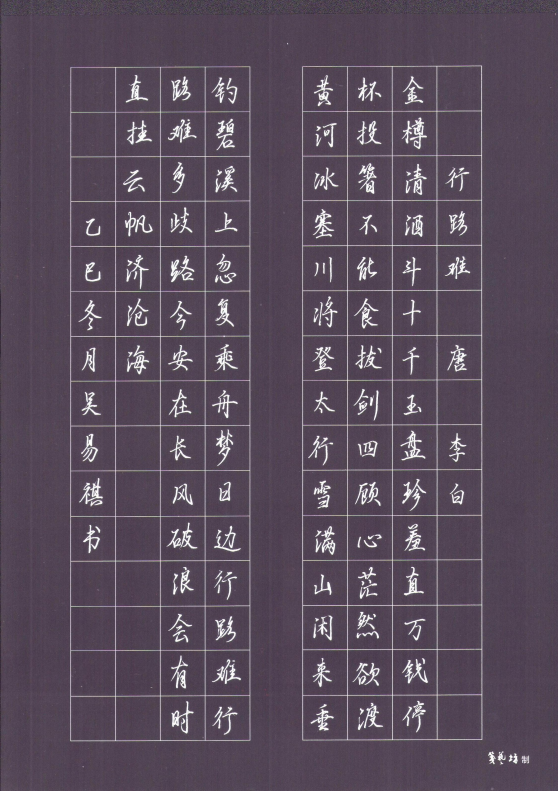 行路难 唐 李白
金樽清酒斗十千玉盘珍羞直万钱停
杯投箸不能食拔剑四顾心茫然欲渡
黄河冰塞川将登太行雪满山闲来垂
钓碧溪上忽复乘舟梦日边行路难行
路难多歧路今安在长风破浪会有时
直挂云帆济沧海
乙巳冬月吴易祺书
笺艺坊制